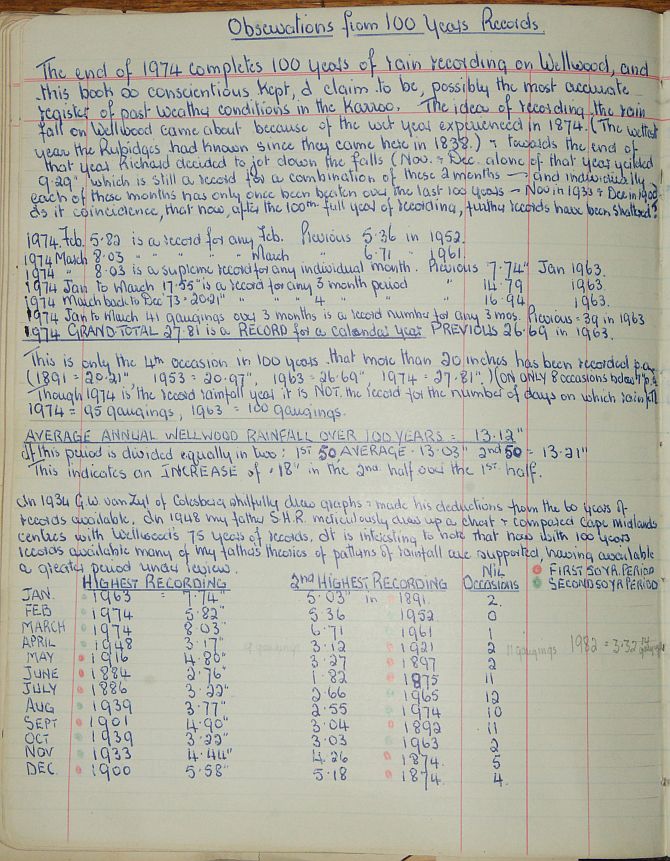 Observations from 100 Years Records.
The end of 1974 completes 100 years of rain recording on Wellwood, and
this book so conscientious kept, I claim to be, possibly the most accurate
register of past weather conditions in the Karroo. The idea of recording the rain
fall on Wellwood came about because of the wet year experienced in 1874. (The wettest
year the Rubidges had known since they came here in 1838.) & towards the end of
that year Richard decided to jot down the falls (Nov. & Dec. alone of that year yielded
9.29", which is still a record for a combination of these 2 months — and individually
each of these months has only once been beaten over the last 100 years - Nov in 1933 & Dec in 1900
Is it coincidence, that now, after the 100th full year of recording, further records have been shattered?
1974 Feb. 5.82 is a record for any Feb. Previous 5.36 in 1952.
1974 March 8.03 " " " " " March " 6.71 " 1961.
1974 " 8.03 is a supreme record for any individual month. Previous 7.74" Jan 1963.
1974 Jan to March 17.55" is a record for any 3 month period " 14.79 1963
1974 March back to Dec '73 - 20.21" " " " " 4 " " 16.94 1963.
1974 Jan to March 41 gaugings over 3 months is a record number for any 3 mos. Previous = 39 in 1963
1974 GRAND TOTAL 27.81 is a RECORD for a calendar year PREVIOUS 26.69 in 1963.
This is only the 4th occasion in 100 years that more than 20 inches has been recorded p.a.
(1891 = 20.21", 1953 = 20.97", 1963 = 26.69" 1974 = 27.81".) (ON ONLY 8 occasions below 7" p.a.
Though 1974 is the record rainfall year it is NOT the record for the number of days on which rain fell
1974 = 95 gaugings, 1963 = 100 gaugings.
AVERAGE ANNUAL WELLWOOD RAINFALL OVER 100 YEARS = 13.12"
If this period is divided equally in two: 1st 50 AVERAGE - 13.03" 2nd 50 = 13.21"
This indicates an INCREASE of .18" in the 2nd half over the 1st half.
In 1934 G.W. van Zyl of Colesberg skilfully drew graphs & made his deductions from the 60 years of
records available. In 1948 my father S.H.R. meticulously drew up a chart & compared Cape midlands
centres with Wellwood's 75 years of records. It is interesting to note that now with 100 years
records available many of my fathers theories of patterns of rainfall are supported, having available
a greater period under review.
NIL FIRST 50 YR. PERIOD
HIGHEST RECORDING 2ND HIGHEST RECORDING OCCASIONS SECOND 50 YR PERIOD
JAN. 1963 = 7.74" 5.03" in 1891. 2
FEB 1974 5.82" 5.36 1952 0
MARCH 1974 8.03" 6.71 1961 1
APRIL 1948 3.17" 3.12 1921 2 11 gaugings 1982 = 3.32 14 gaugings
MAY 1916 4.80" 3.27 1897 2
JUNE 1884 2.76" 1.82 1875 11
JULY 1886 3.22" 2.66 1965 12
AUG 1939 3.77" 2.55 1974 10
SEPT 1901 4.90" 3.04 1892 11
OCT 1939 3.22" 3.03 1963 2
NOV 1933 4.44" 4.26 1874 5
DEC. 1900 5.58" 5.18 1874 4.